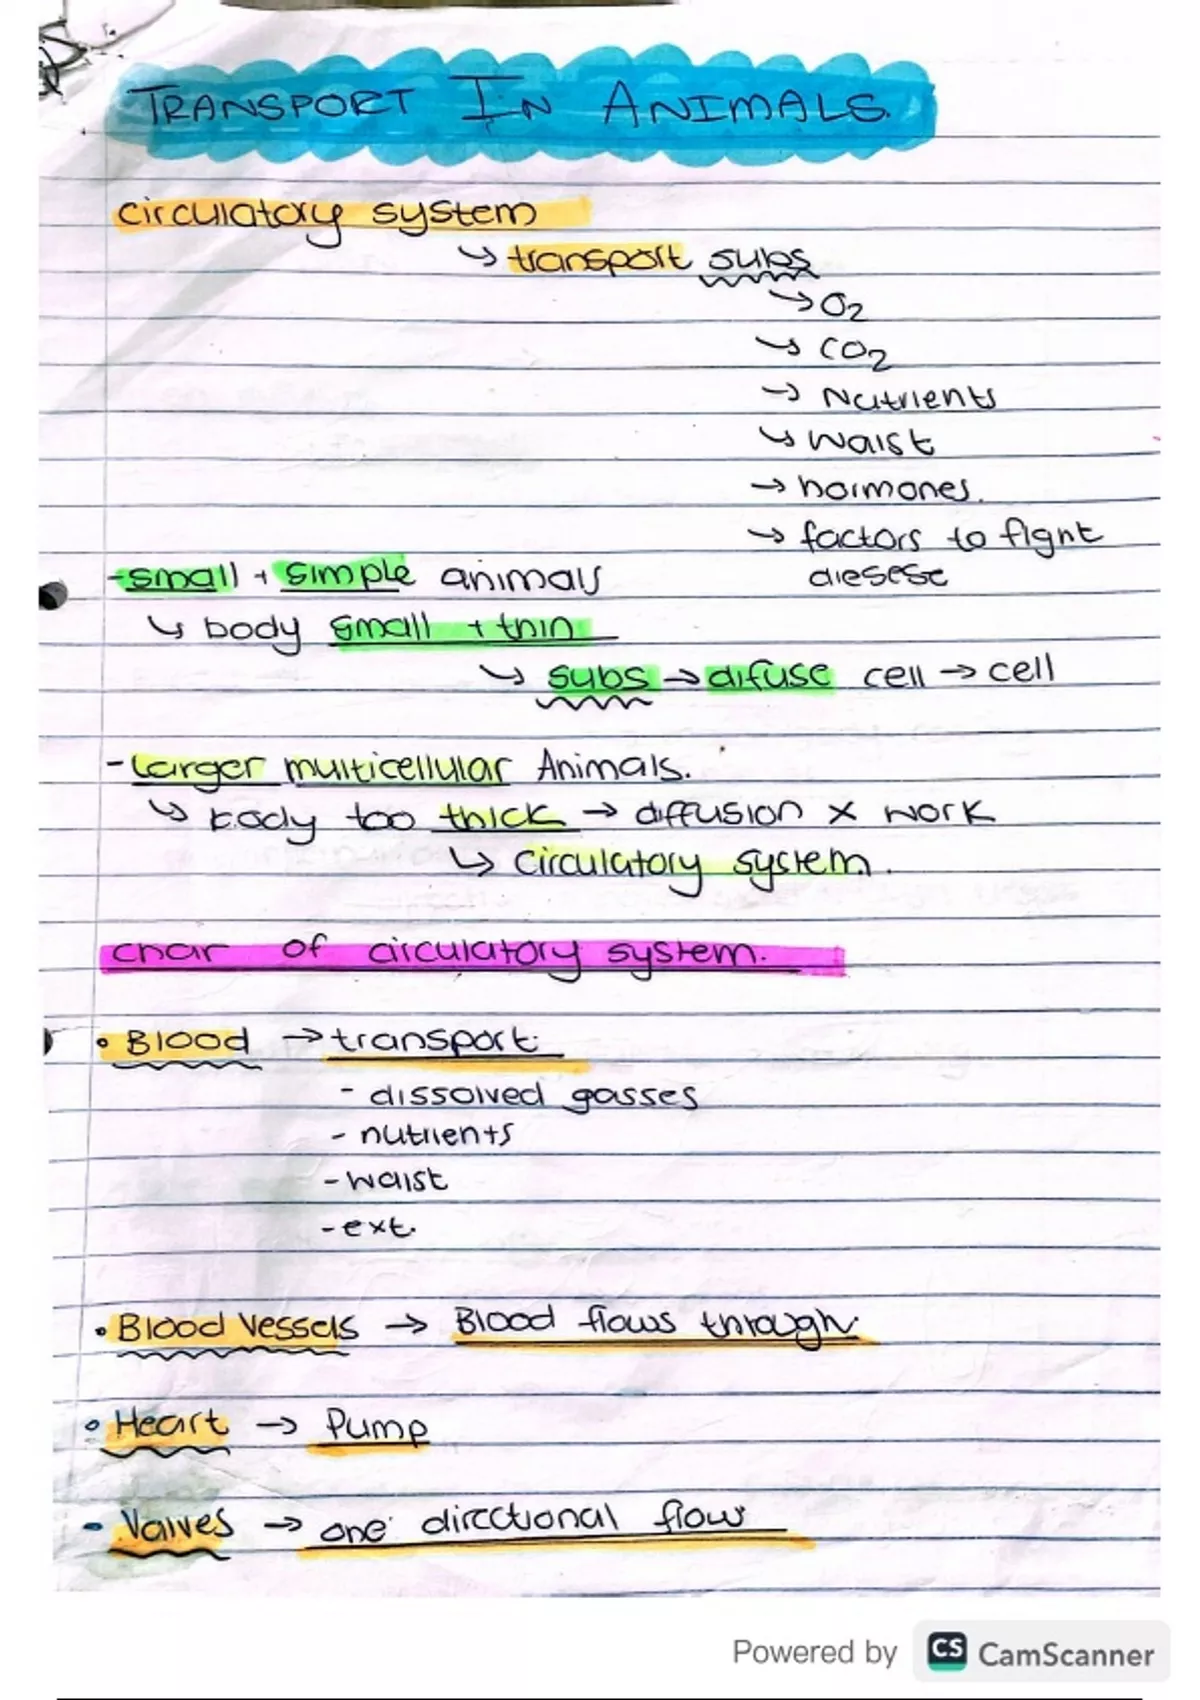 TRANSPORT IN ANIMALS.
circulatory system
↳ transport subs
→ O2
↳ CO2
→ Nutrients
↳ waist
→ hormones.
→ factors to fight
diesese
- small + simple animals
↳ body small + thin
↳ subs → difuse cell → cell
- Larger multicellular Animals.
↳ body too thick → diffusion x work
↳ circulatory system.
char of circulatory system.
• Blood → transport:
- dissolved gasses
- nutrients
- waist
- ext.
• Blood Vessels → Blood flows through.
• Heart → Pump
- Valves → one directional flow
Powered by CS CamScanner